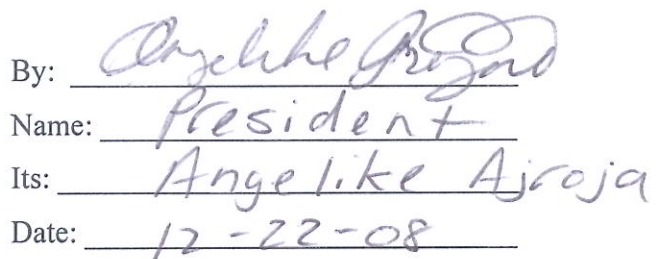 By: Angelike
Name: President
Its: Angelike Ajroja
Date: 12-22-08